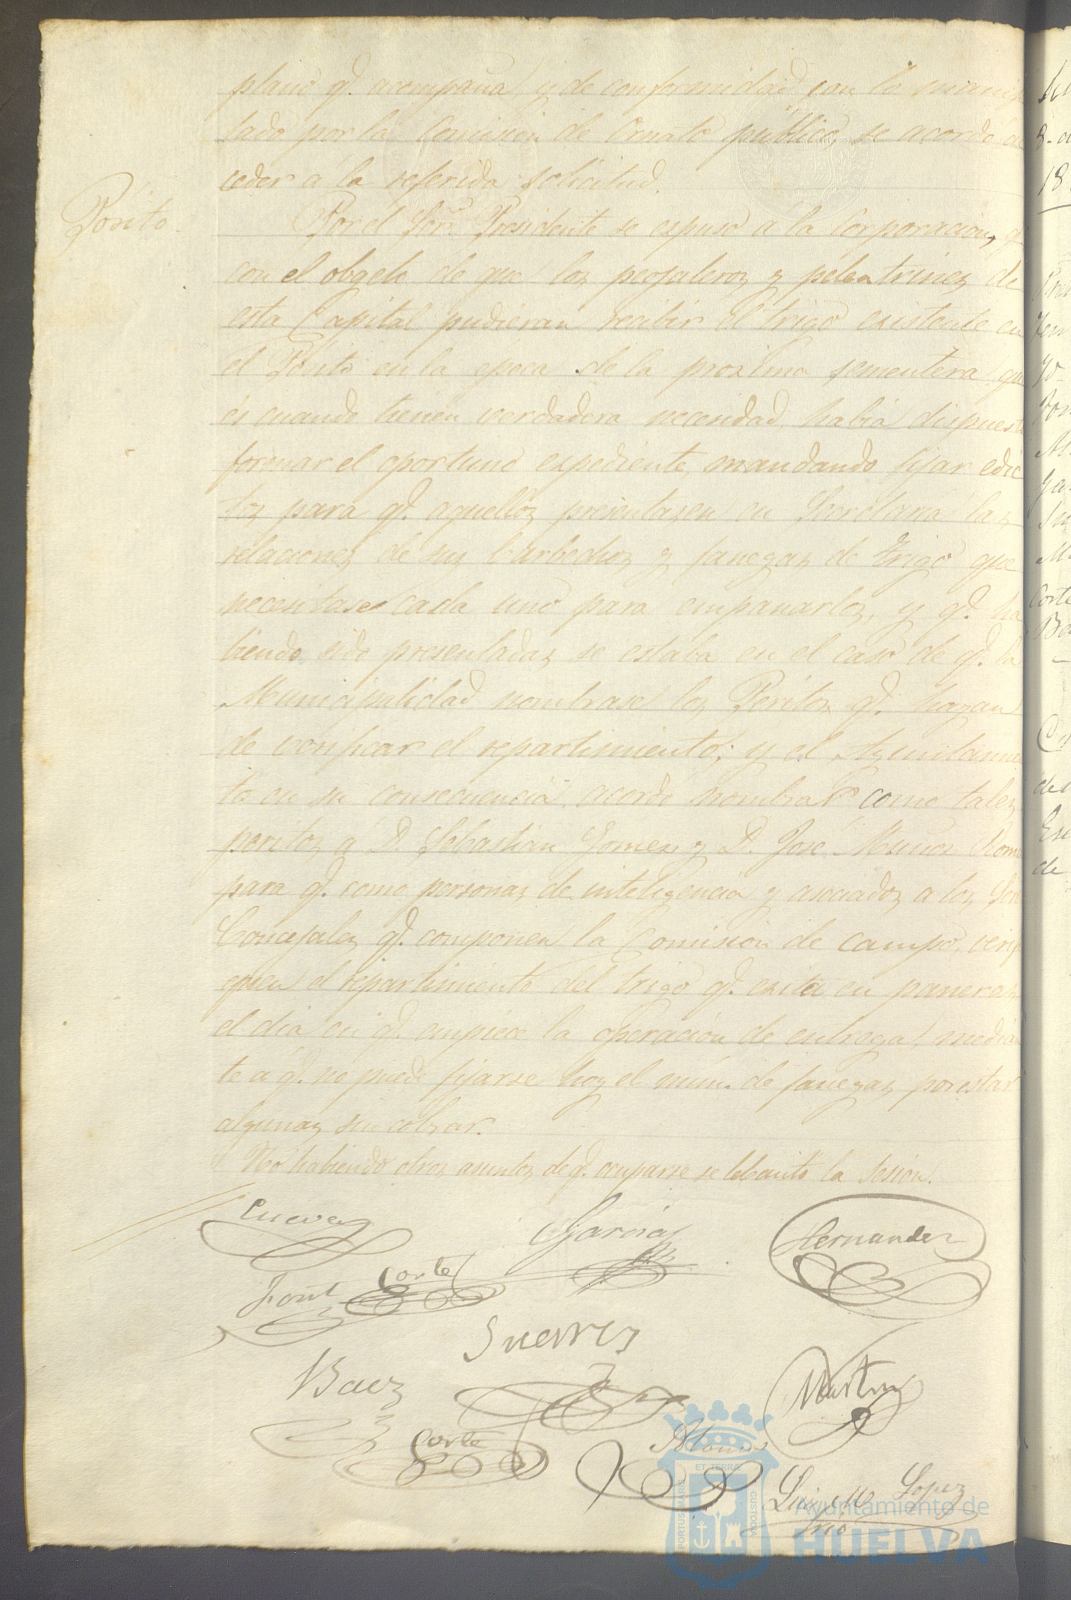 plano q.e acompaña y de conformidad con lo manifes
tado por la Comision de Ornato público, se acordó ac
ceder á la referida solicitud.
Pósito.
Por el Sor. Presidente se espuso á la Corporacion, q.e
con el obgeto de que los pegujaleros y pelantrines de
esta Capital pudieran recibir el trigo existente en
el Pósito en la epoca de la proxima sementera que
es cuando tienen verdadera necesidad, habia dispuesto
formar el oportuno expediente, mandando fijar edic
tos para q.e aquellos presentasen en Secretaria las
relaciones de sus barbechos y fanegas de trigo que
necesitase cada uno para empanarlos, y q.e ha
biendo sido presentadas se estaba en el caso de q.e la
Municipalidad nombrase los Peritos q.e hayan
de verificar el repartimiento; y el Ayuntamien
to en su consecuencia acordó nombrar como tales
peritos a D. Sebastian Gomez y D. José Muñoz
para q.e como personas de inteligencia y asociados a los Sres
Concejales q.e componen la Comision de campo, verifi
quen el repartimiento del trigo q.e exista en paneras
el dia en q.e empiece la operacion de entrega, median
te á q.e no puede fijarse hoy el núm. de fanegas por estar
algunas sin cobrar.
No habiendo otros asuntos de q.e ocuparse se lebantó la Sesion.
Cueva
Garcia
Hernandez
Font
Corte
Suerrez
Baez
Martin
Corte
Alonso
Luis M.a Lopez
srio
ET TERRAE
PORTUS MARIS
CUSTODIA
Ayuntamiento de
HUELVA
Corte
de
de